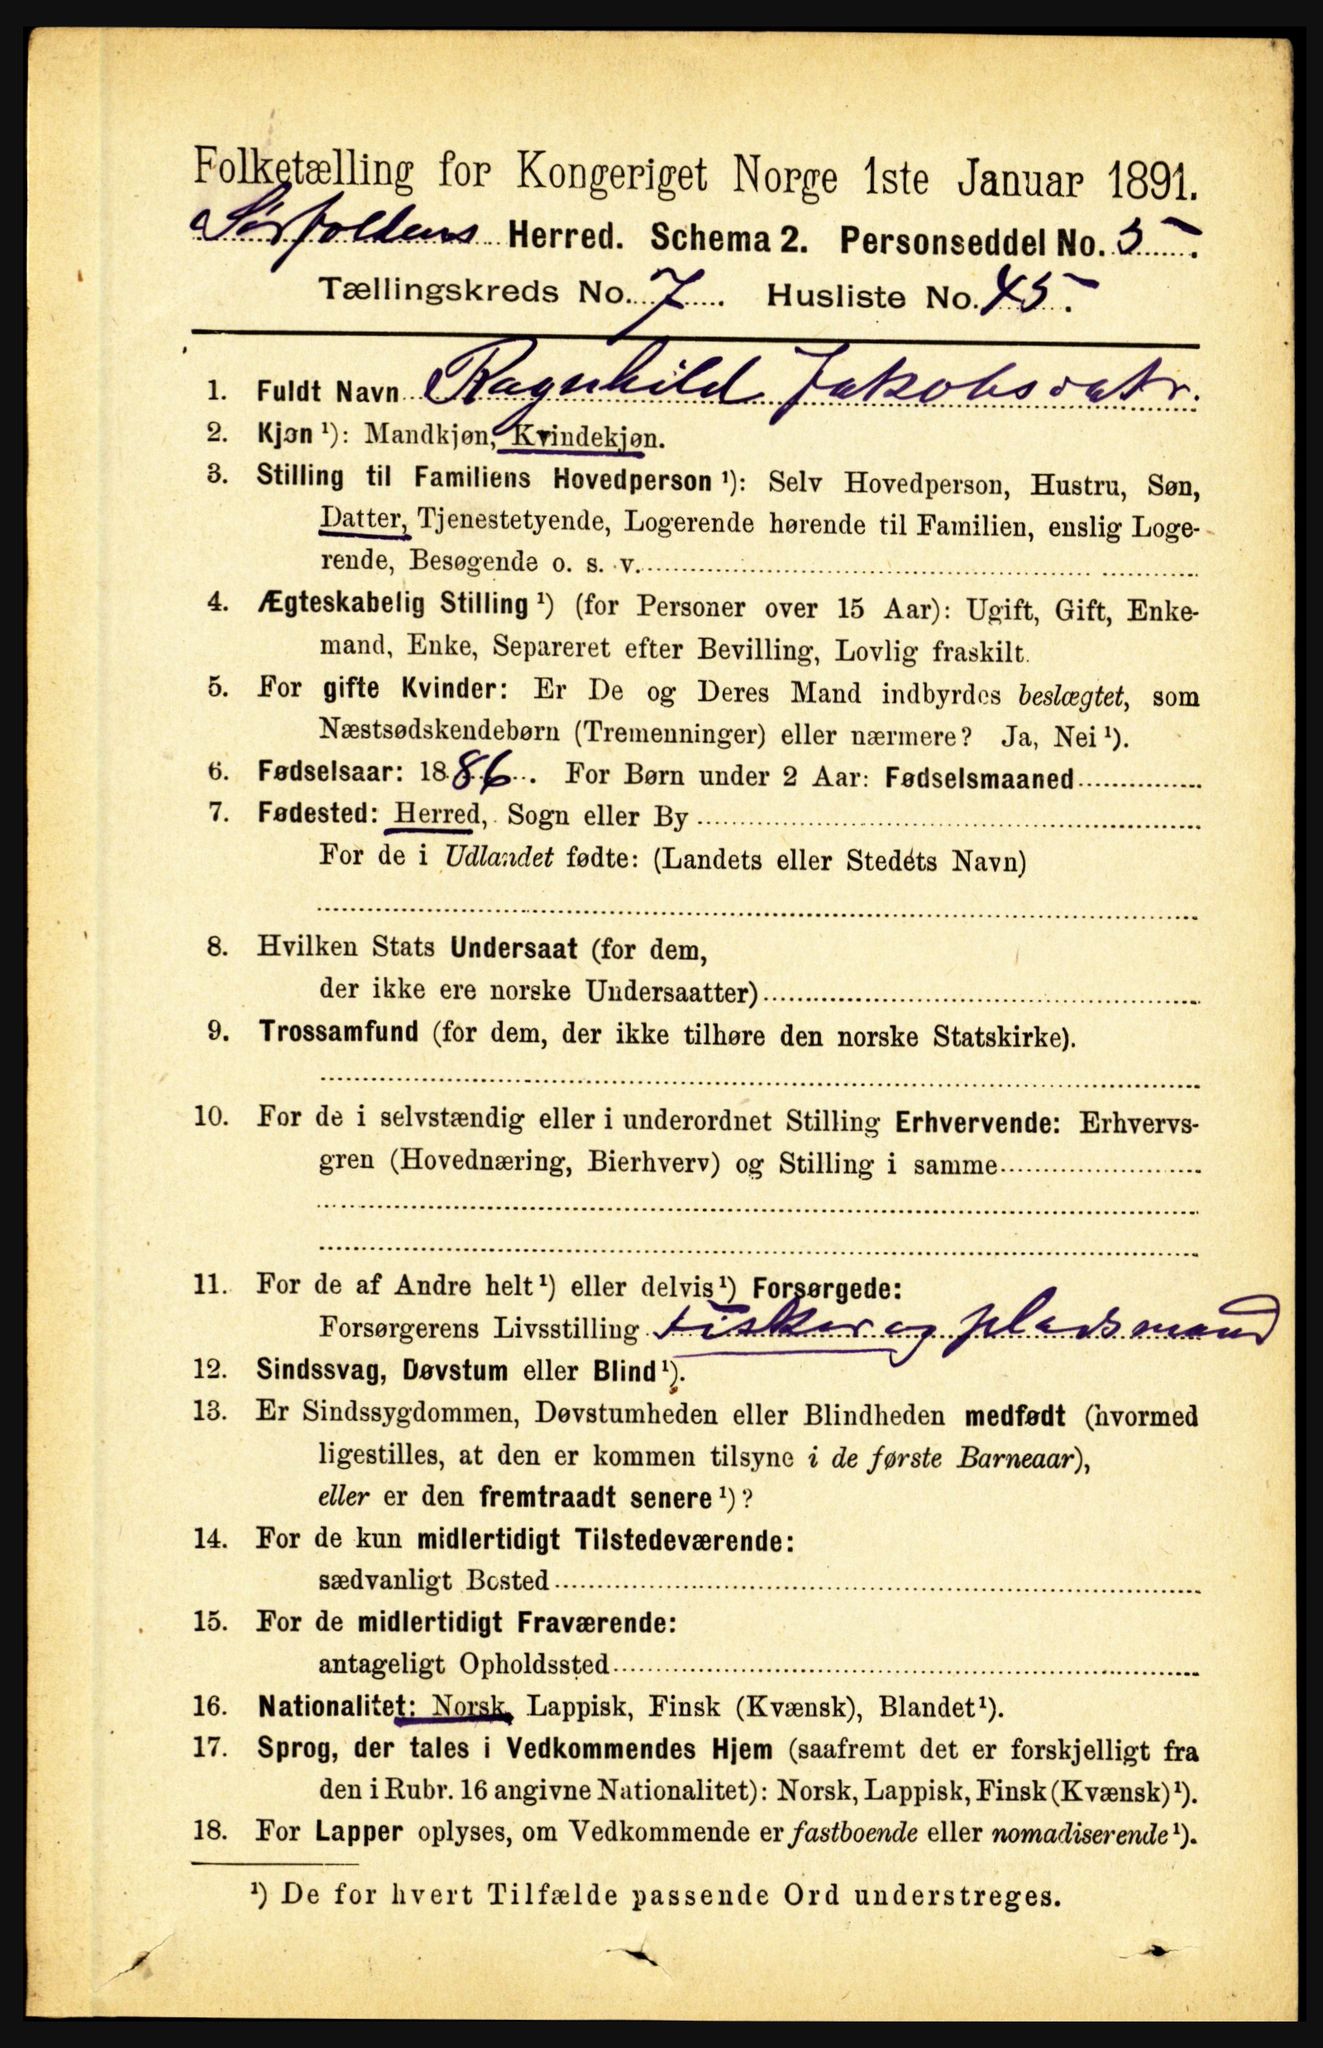 Folketælling for Kongeriget Norge 1ste Januar 1891.
Sørfoldens Herred. Schema 2. Personseddel No. 5.
Tællingskreds No. 7. Husliste No. 45.
1. Fuldt Navn Ragnhild Jakobsdatr.
2. Kjøn ¹): Mandkjøn, Kvindekjøn.
3. Stilling til Familiens Hovedperson ¹): Selv Hovedperson, Hustru, Søn,
Datter, Tjenestetyende, Logerende hørende til Familien, enslig Loge-
rende, Besøgende o. s. v.
4. Ægteskabelig Stilling ¹) (for Personer over 15 Aar): Ugift, Gift, Enke-
mand, Enke, Separeret efter Bevilling, Lovlig fraskilt.
5. For gifte Kvinder: Er De og Deres Mand indbyrdes beslægtet, som
Næstsødskendebørn (Tremenninger) eller nærmere? Ja, Nei ¹).
6. Fødselsaar: 1886. For Børn under 2 Aar: Fødselsmaaned
7. Fødested: Herred, Sogn eller By
For de i Udlandet fødte: (Landets eller Stedets Navn)
8. Hvilken Stats Undersaat (for dem,
der ikke ere norske Undersaatter)
9. Trossamfund (for dem, der ikke tilhøre den norske Statskirke).
10. For de i selvstændig eller i underordnet Stilling Erhvervende: Erhvervs-
gren (Hovednæring, Bierhverv) og Stilling i samme
11. For de af Andre helt ¹) eller delvis ¹) Forsørgede:
Forsørgerens Livsstilling Fisker og pladsmand
12. Sindssvag, Døvstum eller Blind ¹).
13. Er Sindssygdommen, Døvstumheden eller Blindheden medfødt (hvormed
ligestilles, at den er kommen tilsyne i de første Barneaar),
eller er den fremtraadt senere ¹)?
14. For de kun midlertidigt Tilstedeværende:
sædvanligt Bosted
15. For de midlertidigt Fraværende:
antageligt Opholdssted
16. Nationalitet: Norsk, Lappisk, Finsk (Kvænsk), Blandet ¹).
17. Sprog, der tales i Vedkommendes Hjem (saafremt det er forskjelligt fra
den i Rubr. 16 angivne Nationalitet): Norsk, Lappisk, Finsk (Kvænsk) ¹).
18. For Lapper oplyses, om Vedkommende er fastboende eller nomadiserende ¹).
¹) De for hvert Tilfælde passende Ord understreges.